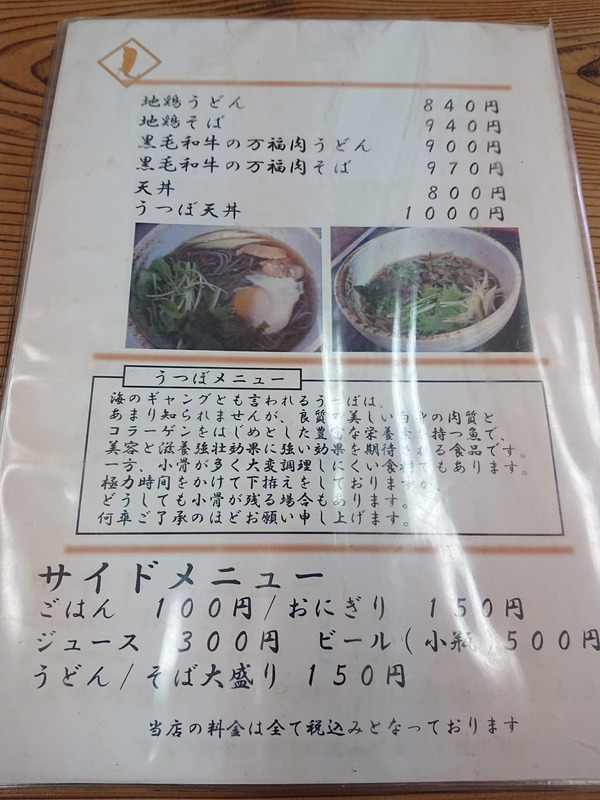 地鶏うどん 840円
地鶏そば 940円
黒毛和牛の万福肉うどん 900円
黒毛和牛の万福肉そば 970円
天丼 800円
うつぼ天丼 1000円
うつぼメニュー
海のギャングとも言われるうつぼは、
あまり知られませんが、良質の美しい白身の肉質と
コラーゲンをはじめとした豊富な栄養素を持つ魚で、
美容と滋養強壮効果に強い効果を期待される食品です。
一方、小骨が多く大変調理しにくい食材でもあります。
極力時間をかけて下拵えをしておりますが、
どうしても小骨が残る場合もあります。
何卒ご了承のほどお願い申し上げます。
サイドメニュー
ごはん 100円/おにぎり 150円
ジュース 300円 ビール(小瓶)500円
うどん/そば大盛り 150円
当店の料金は全て税込みとなっております